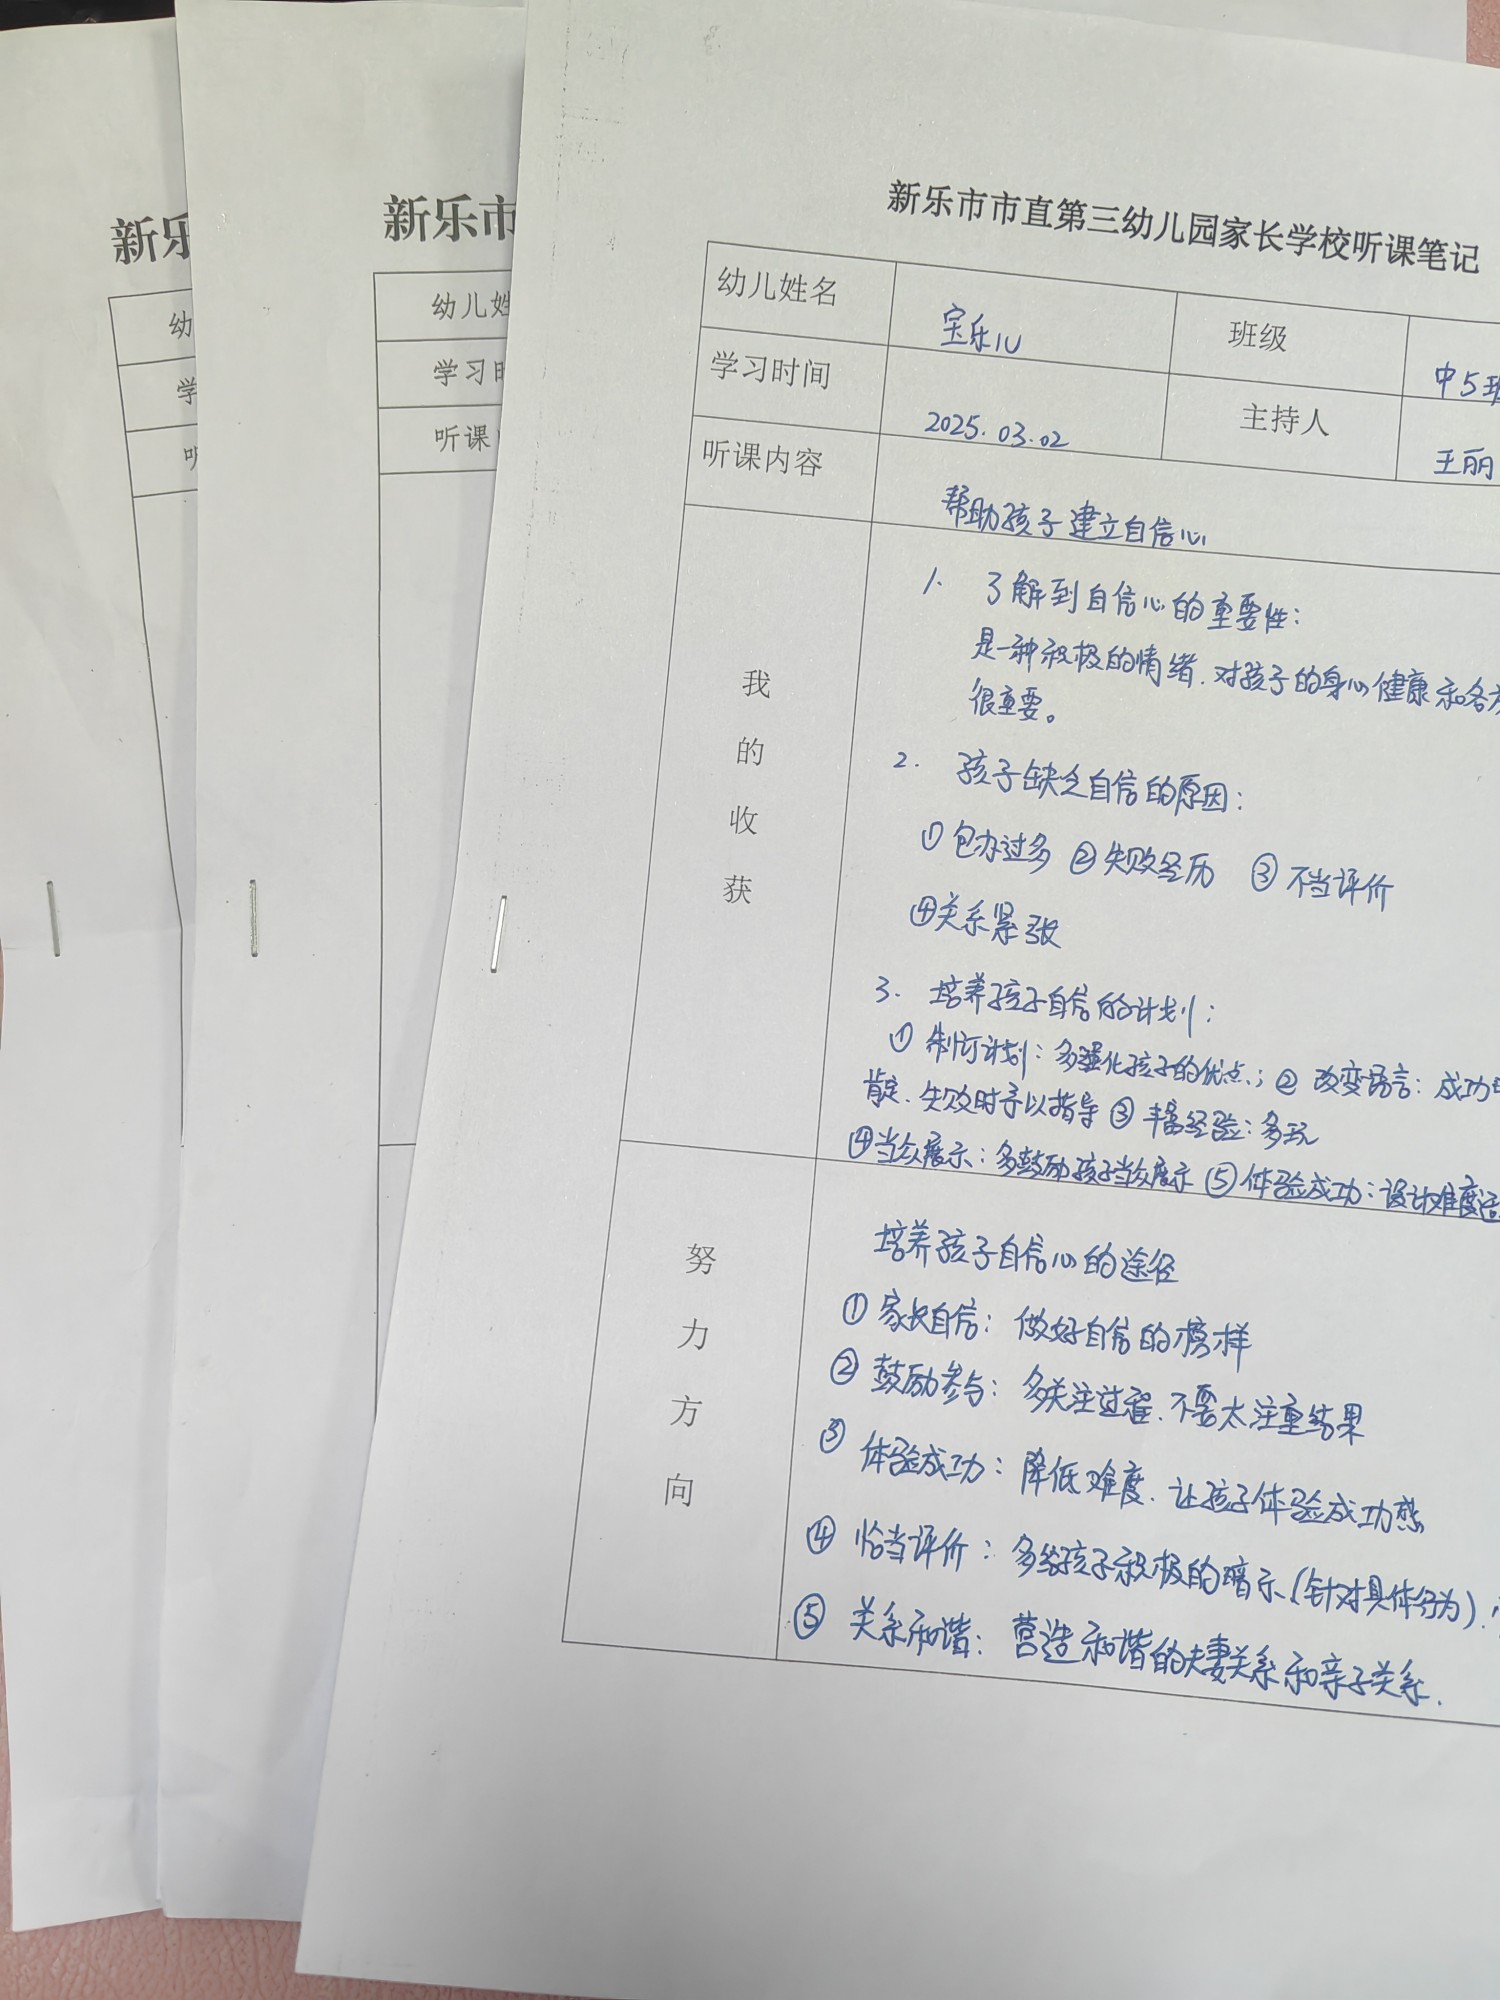 新乐
幼
学
听
新乐市
幼儿姓
学习时
听课
新乐市市直第三幼儿园家长学校听课笔记
幼儿姓名 班级 中5班
学习时间 2025.03.02 主持人 王丽
听课内容 帮助孩子建立自信心
我的收获
1. 了解到自信心的重要性:
是一种积极的情绪.对孩子的身心健康和各方
很重要。
2. 孩子缺乏自信的原因:
①包办过多 ②失败经历 ③不当评价
④关系紧张
3. 培养孩子自信的计划:
① 制订计划:多强化孩子的优点;② 改变语言:成功时
肯定.失败时予以指导 ③ 丰富经验:多玩
④当众展示:多鼓励孩子当众展示 ⑤体验成功:设计难度适
努力方向
培养孩子自信心的途径
① 家长自信: 做好自信的榜样
② 鼓励参与: 多关注过程.不要太注重结果
③ 体验成功: 降低难度.让孩子体验成功感
④ 恰当评价: 多给孩子积极的暗示.(针对具体行为).
⑤ 关系和谐: 营造和谐的夫妻关系和亲子关系.